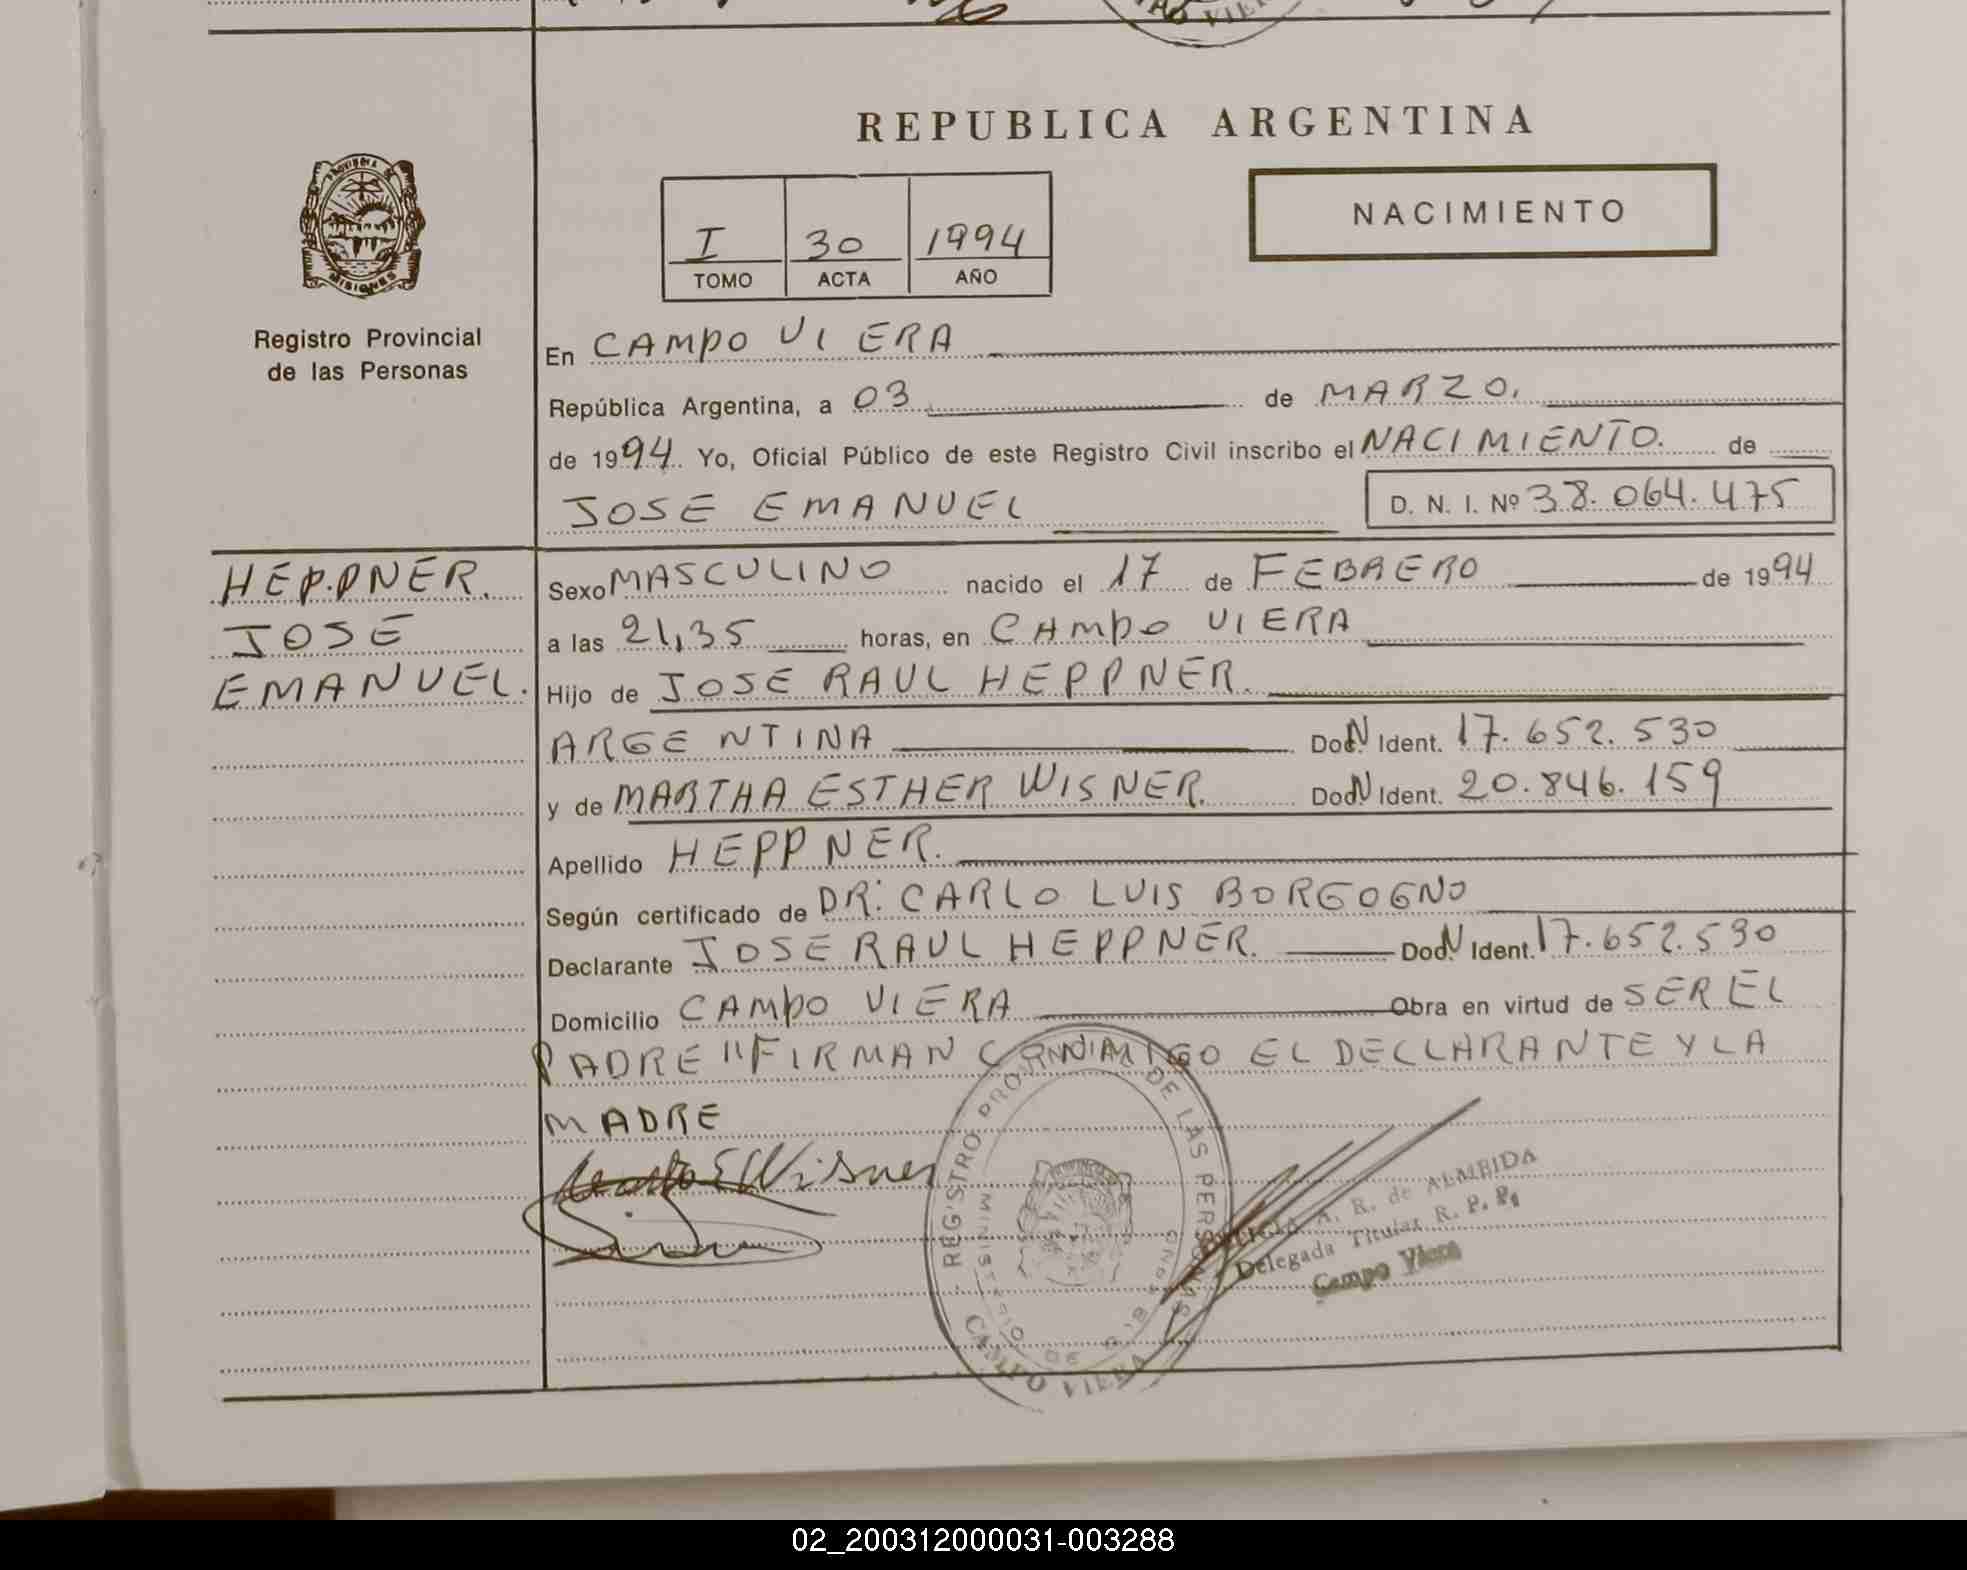 REPUBLICA ARGENTINA
PROVINCIA DE
MISIONES
Registro Provincial
de las Personas
I 30 1994
TOMO ACTA AÑO
NACIMIENTO
En CAMPO VIERA
República Argentina, a 03 de MARZO.
de 1994. Yo, Oficial Público de este Registro Civil inscribo el NACIMIENTO. de
JOSE EMANUEL D. N. I. Nº 38.064.475
HEPPNER.
JOSE
EMANUEL.
Sexo MASCULINO nacido el 17 de FEBRERO de 1994
a las 21,35 horas, en CAMPO VIERA
Hijo de JOSE RAUL HEPPNER.
ARGENTINA Doc. N Ident. 17.652.530
y de MARTHA ESTHER WISNER. Doc. N Ident. 20.846.159
Apellido HEPPNER.
Según certificado de DR: CARLO LUIS BORGOGNO
Declarante JOSE RAUL HEPPNER. Doc. N Ident. 17.652.530
Domicilio CAMPO VIERA Obra en virtud de SER EL
PADRE "FIRMAN CONMIGO EL DECLARANTE Y LA
MADRE
Wisner
REGISTRO PROVINCIAL DE LAS PERSONAS
MINISTERIO DE
CAMPO VIERA
A. R. de ALMEIDA
Delegada Titular R. P. P.
Campo Viera
02_200312000031-003288